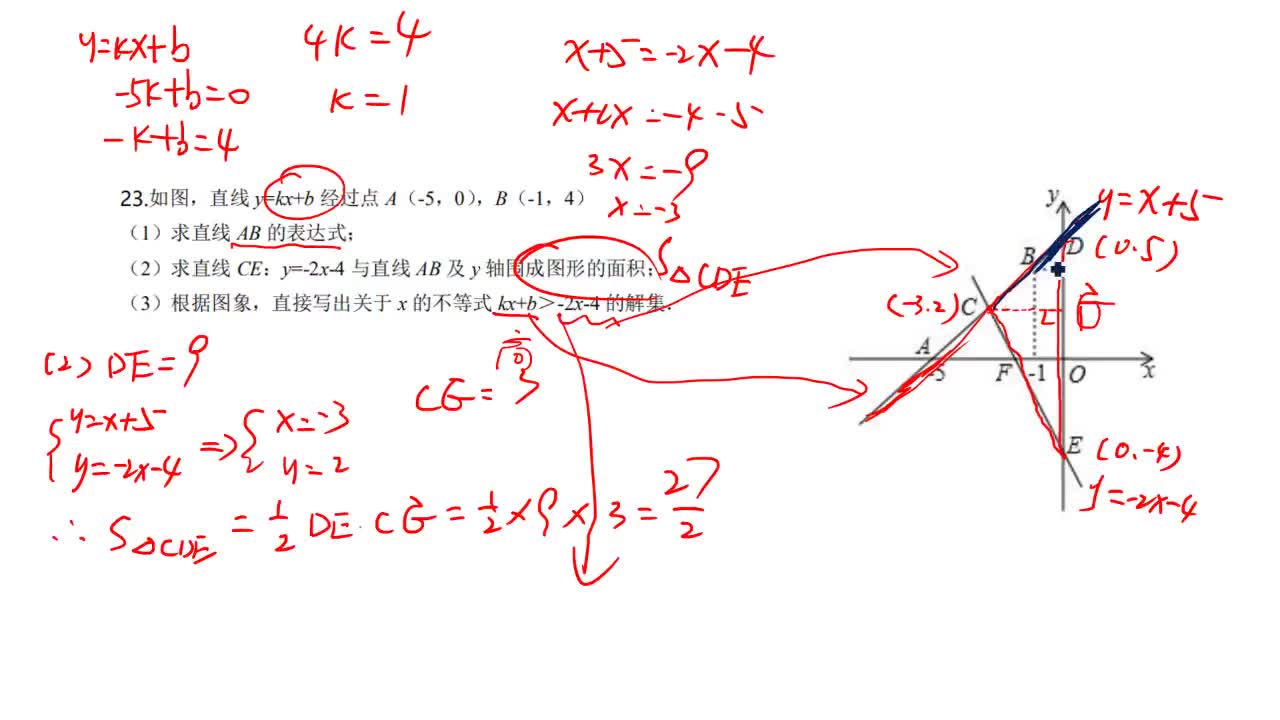 y=kx+b
-5k+b=0
-k+b=4
4k=4
k=1
x+5=-2x-4
x+2x=-4-5
3x=-9
x=-3
23.如图，直线 y=kx+b 经过点 A（-5，0），B（-1，4）
（1）求直线 AB 的表达式；
（2）求直线 CE：y=-2x-4 与直线 AB 及 y 轴围成图形的面积；
S△CDE
（3）根据图象，直接写出关于 x 的不等式 kx+b＞-2x-4 的解集.
(2) DE=9
高
CG=3
{y=x+5
y=-2x-4
=> {x=-3
y=2
∴ S△CDE = 1/2 DE·CG = 1/2×9×3 = 27/2
y
y=x+5
D
(0.5)
B
C
(-3.2)
G
A
-5
F
-1
O
x
E
(0.-4)
y=-2x-4